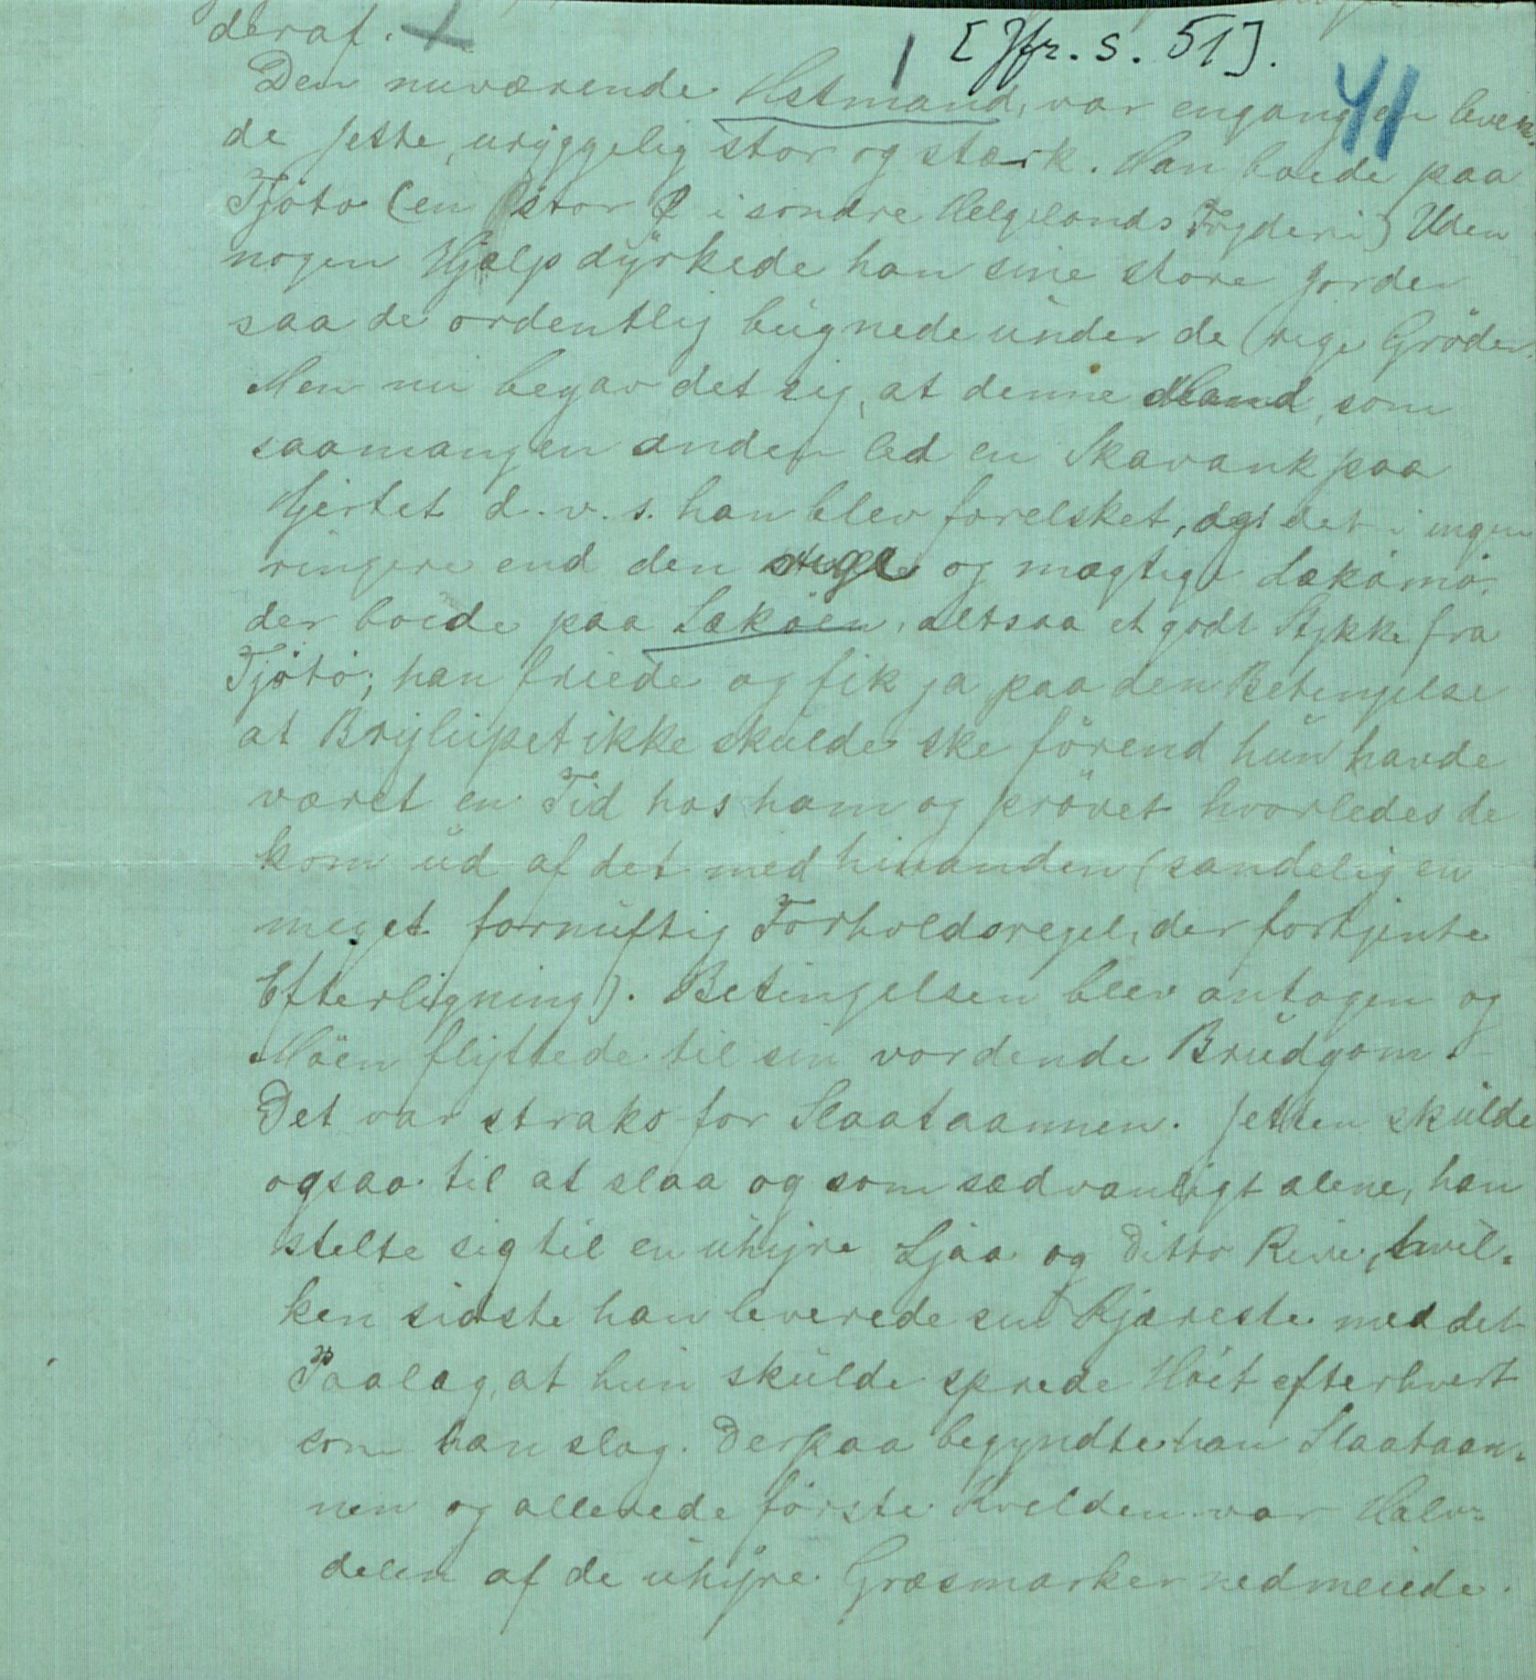 deraf.
[Jfr. s. 51].
41
Den nuværende Hestmand, var engang en leven-
de Jette, uryggelig stor og stærk. Han boede paa
Tjötö (en stor Ö i söndre Helgelands Fogderi) Uden
nogen Hjælp dyrkede han sine store Jorder
saa de ordentlig bugnede under de rige Gröder.
Men nu begav det sig, at denne Mand, som
saamangen anden led en Skavank paa
Hjertet d.v.s. han blev forelsket, og det i ingen
ringere end den og mægtige Lækömö.
der boede paa Læköen, altsaa et godt Stykke fra
Tjötö; han friede og fik ja paa den Betingelse
at Bryllupet ikke skulde ske förend hun havde
været en Tid hos ham og prövet hvorledes de
kom ud af det med hinanden (sandelig en
meget fornuftig Forholdsregel, der fortjente
Efterligning). Betingelsen blev antagen og
Möen flyttede til sin vordende Brudgom.
Det var straks for Slaataannen. Jetten skulde
ogsaa til at slaa og som sædvanligt alene, han
stelte sig til en uhyre Ljaa og Ditto Rive, hvil-
ken sidste han leverede sin Kjæreste med det
Paalæg, at hun skulde sprede Höet efterhvert
som han slog. Derpaa begyndte han Slaataan-
nen og allerede förste Kvelden var Halv-
delen af de uhyre Græsmarker nedmeiede.